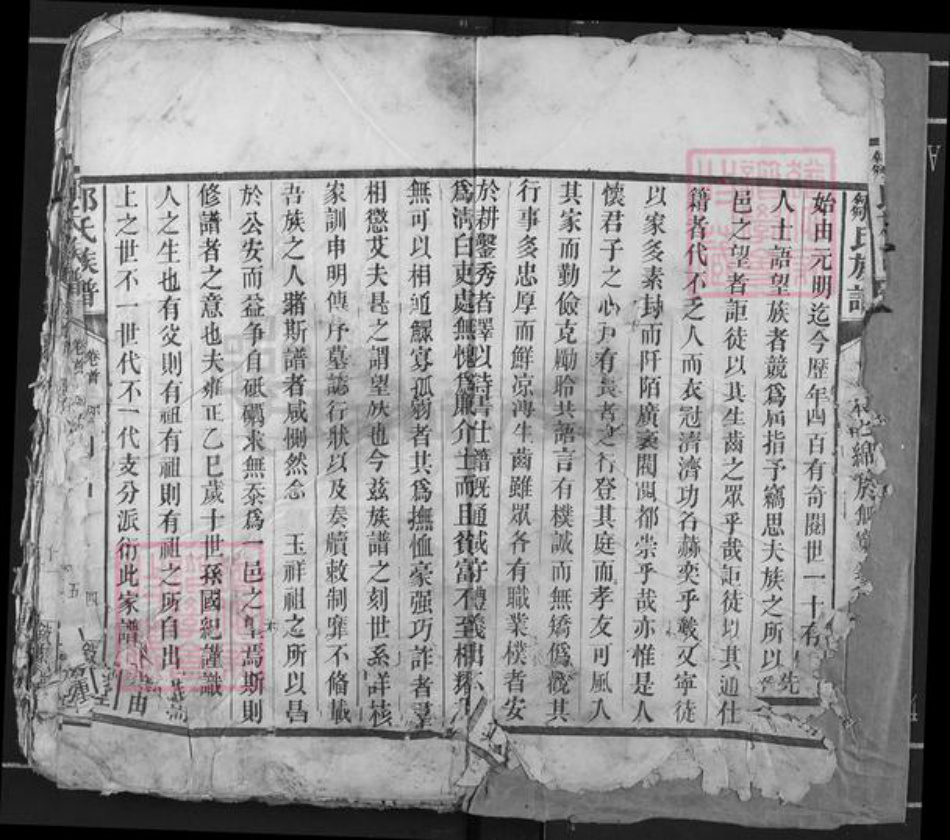 鄒氏族譜
始由元明迄今歷年四百有奇閱世一十有
人士語望族者競為屈指予竊思夫族之所以先
邑之望者詎徒以其生齒之眾乎哉詎徒以其通仕
籍者代不乏人而衣冠濟濟功名赫奕乎哉又寧徒
以家多素封而阡陌廣袤閥閱都崇乎哉亦惟是人
懷君子之心戶有長者之行登其庭而孝友可風入
其家而勤儉克勵聆其語言有樸誠而無矯偽覩其
行事多忠厚而鮮凉薄生齒雖眾各有職業樸者安
於耕鑿秀者擇以詩書仕譜既通誠守禮義出
為清白吏處無愧為廉介士而且貧富不至相耀
無可以相通鰥寡孤弱者其為撫恤豪强巧詐者
相懲艾夫是之謂望族也今兹族譜之刻世系詳核
家訓申明傳序墓誌行狀以及奏牘敕制靡不偹載
吾族之人睹斯譜者咸惻然念 玉祥祖之所以昌
於公安而益爭自砥礪求無忝為一邑之望焉斯則
修譜者之意也夫雍正乙巳歲十世孫國紀謹識
人之生也有父則有祖有祖則有祖之所自出
上之世不一世代不一代支分派衍此家譜 由
氏族譜
卷首
卷首
四
五